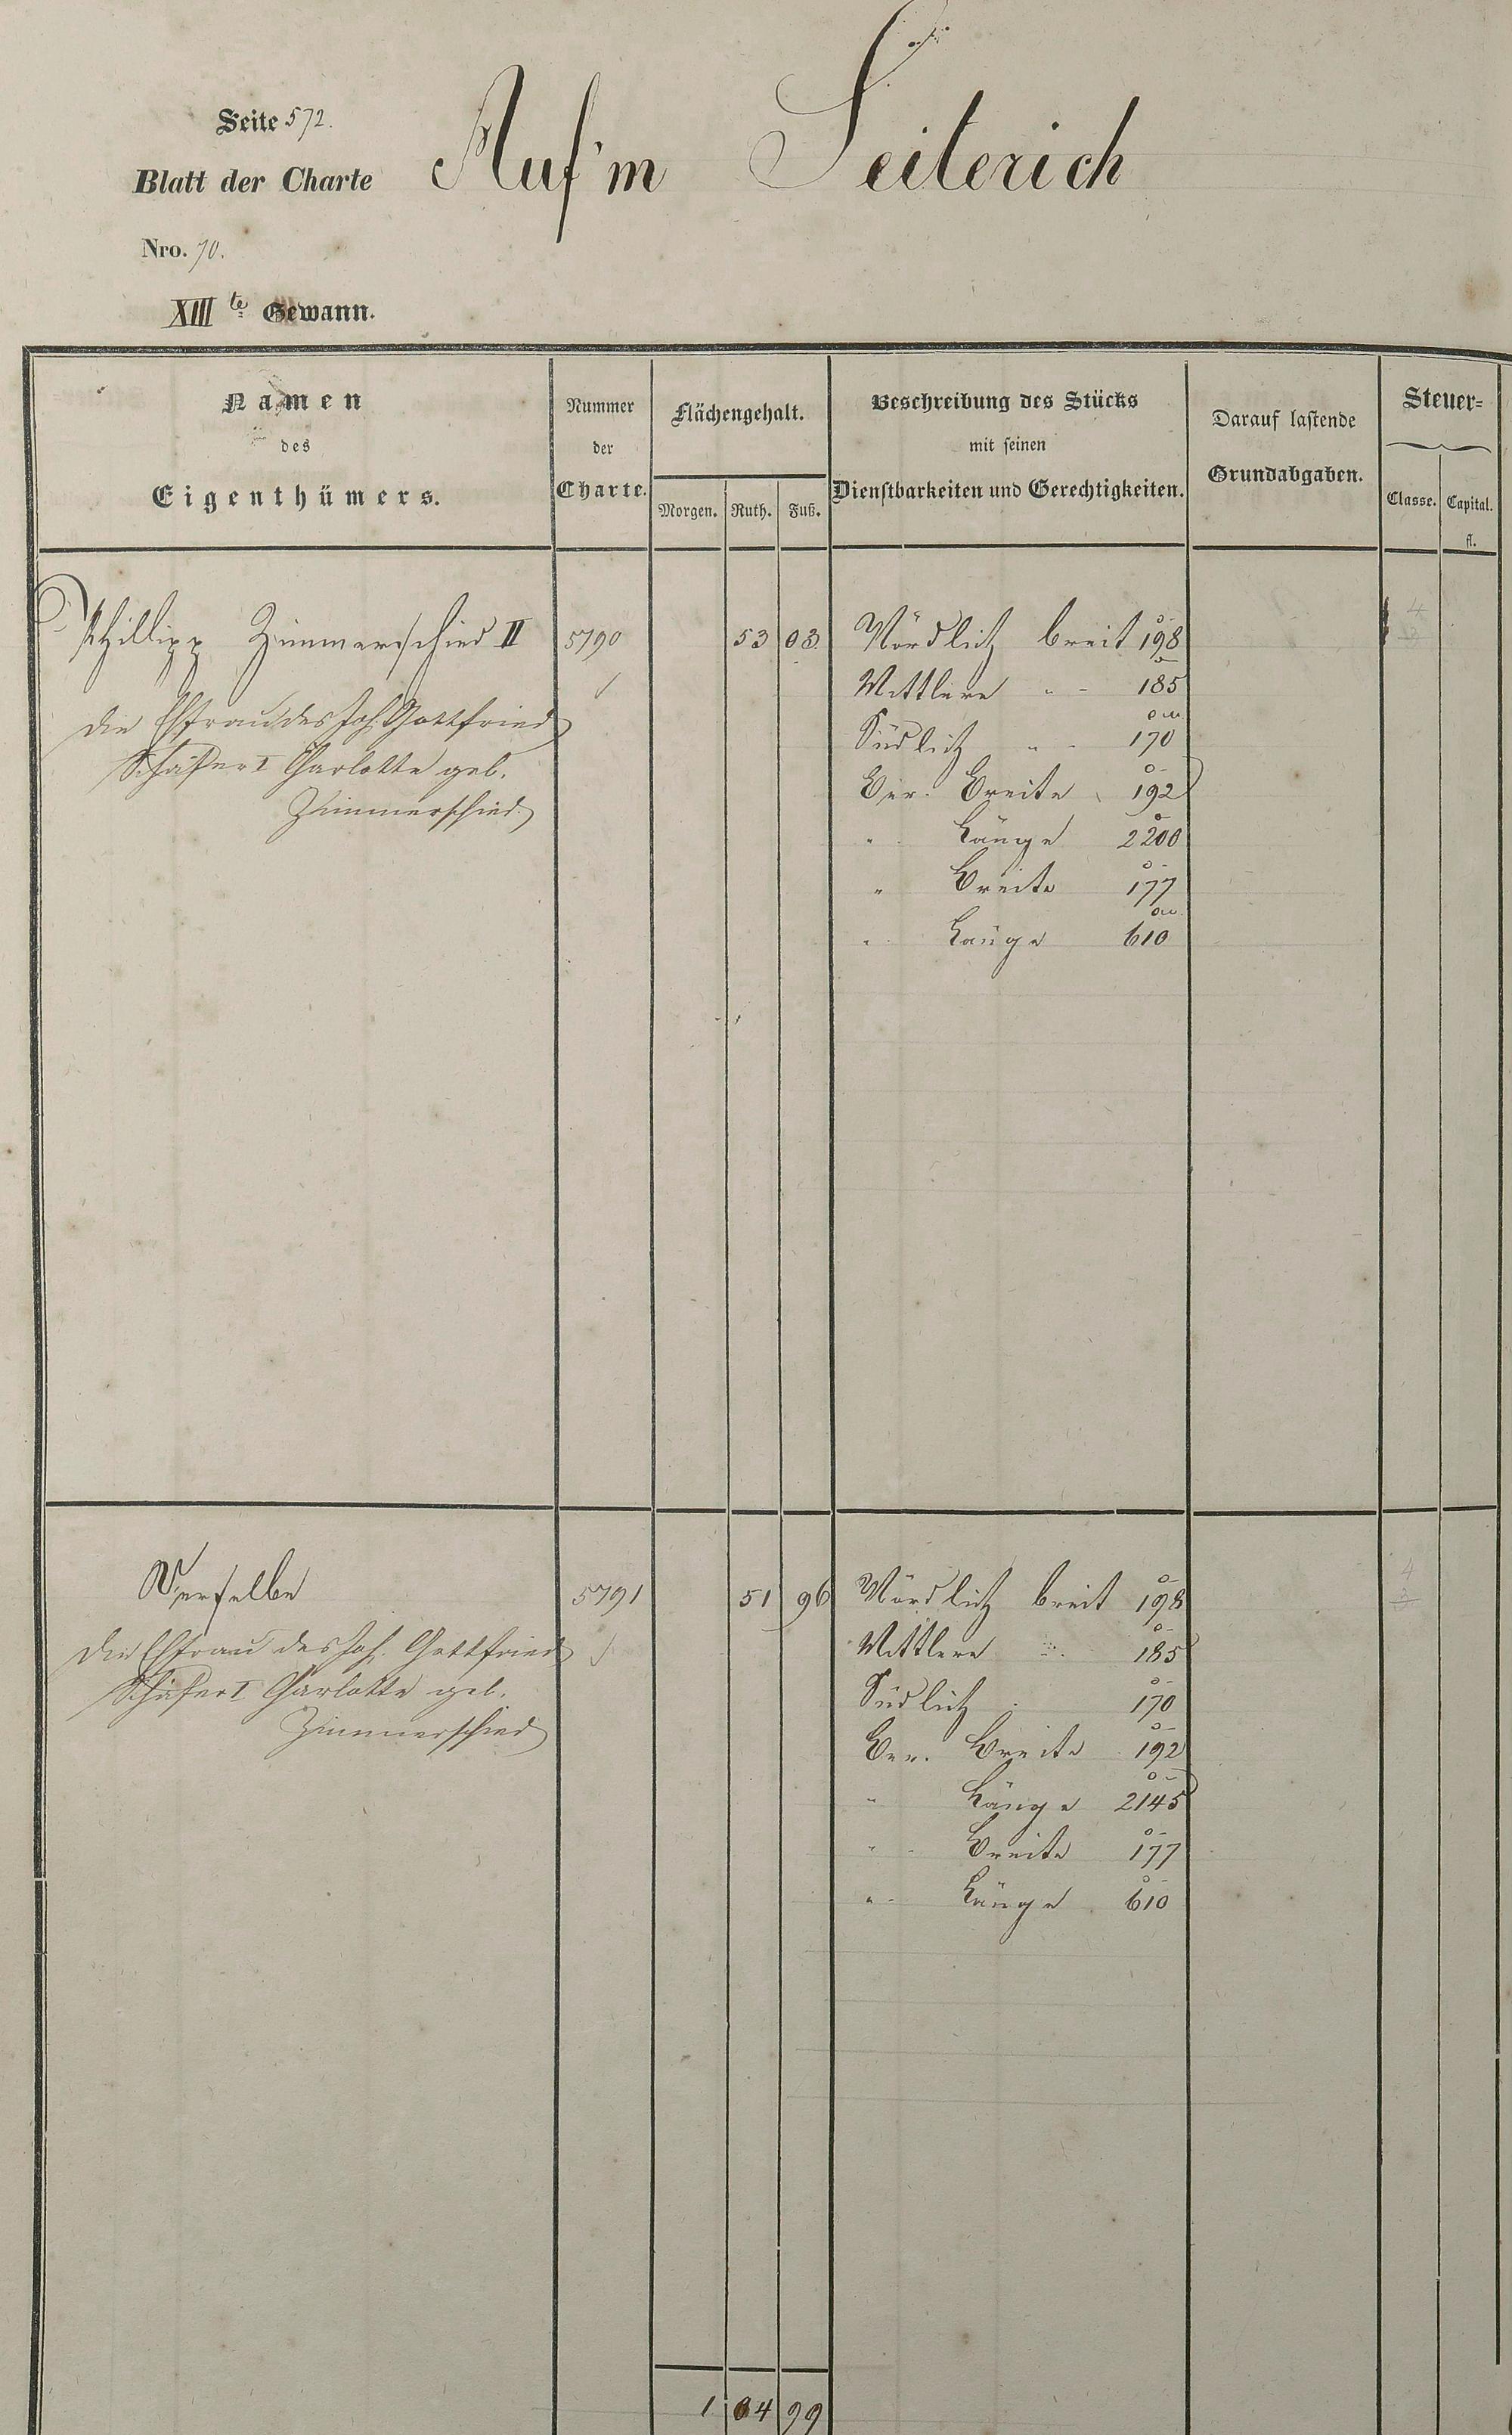 Seite 572.
Blatt der Charte
Nro. 70.
XIII te Gewann.
Auf'm Seiterich
Namen
des
Eigenthümers.
Nummer
der
Charte.
Flächengehalt.
Morgen. Ruth. Fuß.
Beschreibung des Stücks
mit seinen
Dienstbarkeiten und Gerechtigkeiten.
Darauf lastende
Grundabgaben.
Steuer-
Classe. Capital.
fl.
Phillipp Zimmerschied II 5790 53 03 Nördlich breit 198 4
Die Ehfrau des Joh. Gottfried
Schäfer I Charlotte geb.
Zimmerschied
Mittlere " - 185
Südlich " - 170
Ber. Breite 192
" Länge 2200
" Breite 177
" Länge 610
Derselbe 5791 51 96 Nördlich breit 198 4
Die Ehfrau des Joh. Gottfried
Schäfer I Charlotte geb.
Zimmerschied
Mittlere " 185
Südlich " 170
Ber. Breite 192
" Länge 2145
" Breite 177
" Länge 610
1 04 99